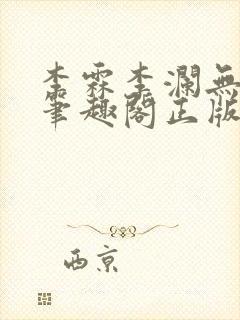 李霖李瀾無
筆趣閣正版
西京